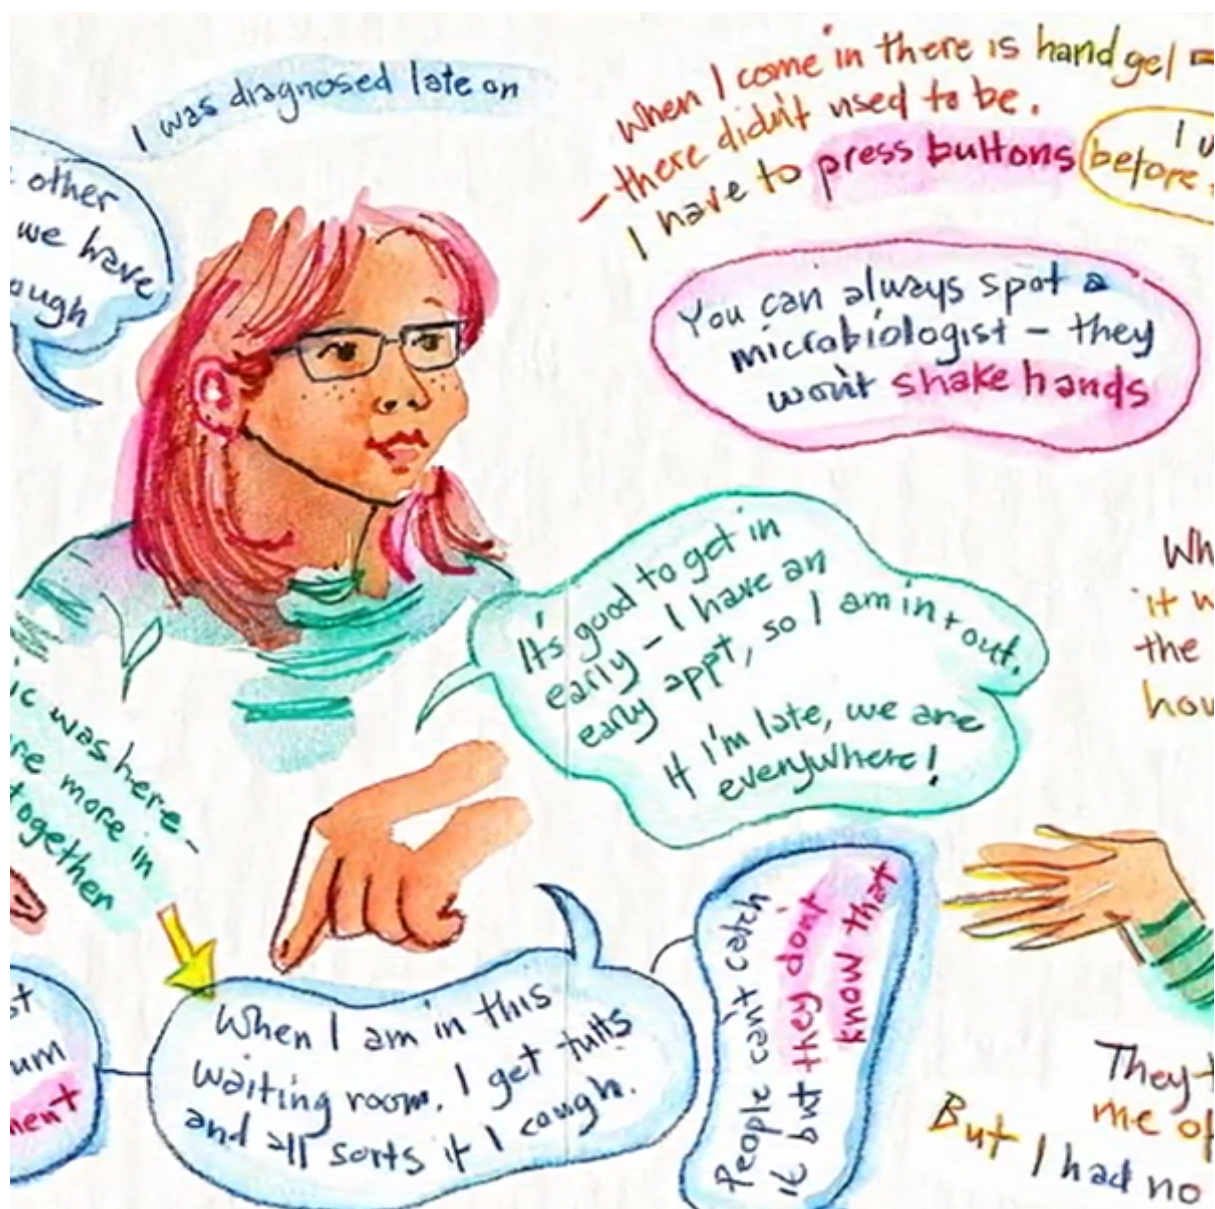 I was diagnosed late on
other
we have
When I come in there is hand gel -
- there didn't used to be.
I have to press buttons
before
You can always spot a
microbiologist - they
won't shake hands
It's good to get in
early - I have an
early appt, so I am in + out.
If I'm late, we are
everywhere!
was here -
more in
together
the
it
When I am in this
waiting room, I get tutts
and all sorts if I cough.
People can't catch
it but they don't
know that
They
me of
But I had no